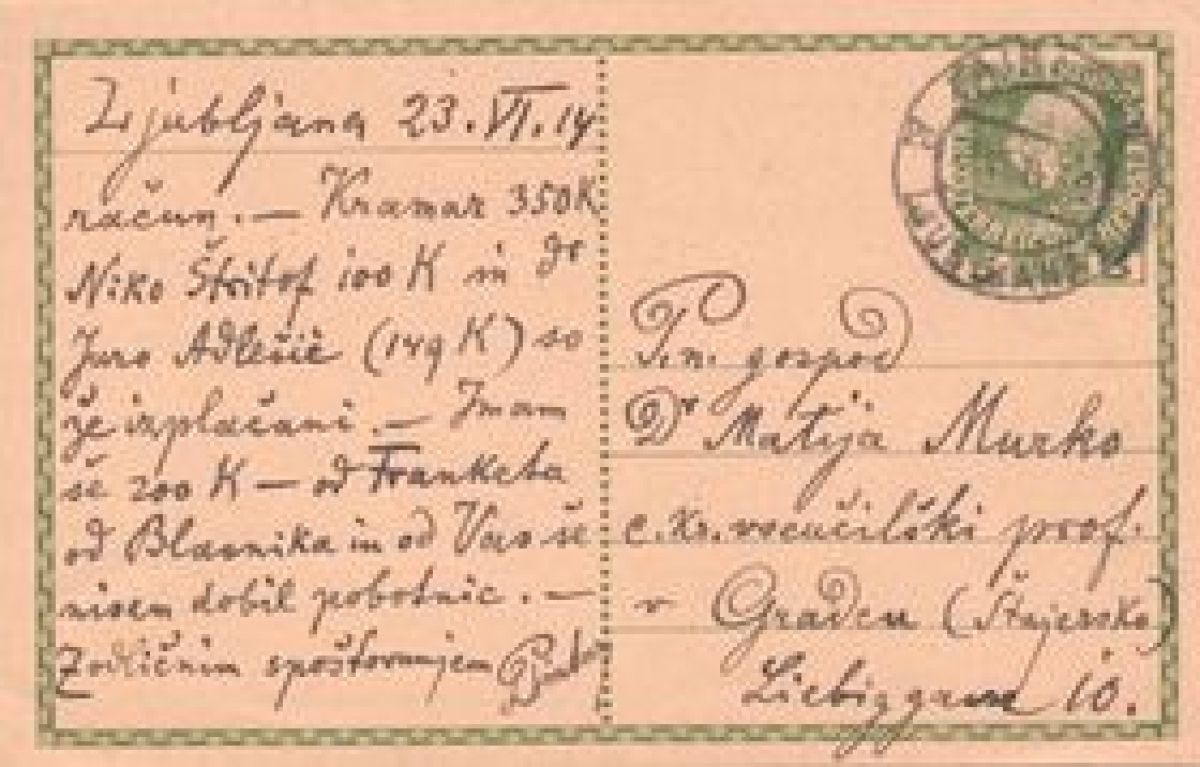 Ljubljana 23.VI.14
račun. — Kramar 350K
Niko Štritof 100 K in dr
Juro Adlešič (149 K) so
že izplačani. — Imam
še 200 K — od Franketa
od Blasnika in od Vas še
nisem dobil pobotnic. —
Z odličnim spoštovanjem
T.n. gospod
Dr Matija Murko
c. kr. vseučilški prof.
v Gradcu (Štajersko)
Liebiggasse 10.